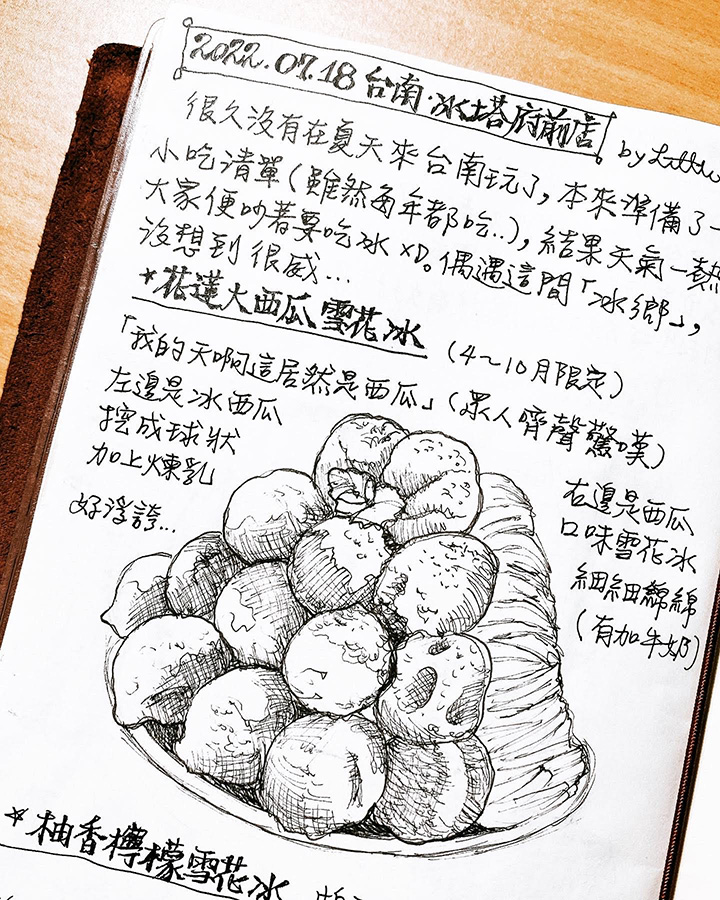 2022.07.18 台南·冰塔府前店
by
很久沒有在夏天來台南玩了,本來準備了一
小吃清單(雖然每年都吃..),結果天氣一熱
大家便吵著要吃冰XD。偶遇這間「冰鄉」,
沒想到很威...
*花蓮大西瓜雪花冰
(4~10月限定)
「我的天啊這居然是西瓜」(眾人齊聲驚嘆)
左邊是冰西瓜
挖成球狀
加上煉乳
好浮誇...
右邊是西瓜
口味雪花冰
細細綿綿
(有加牛奶)
*柚香檸檬雪花冰